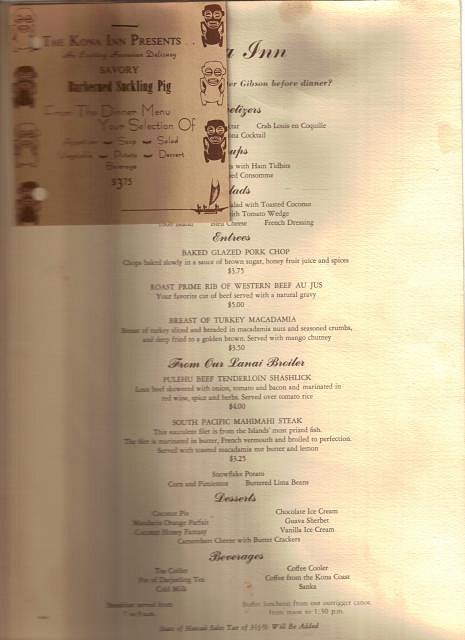 THE KONA INN PRESENTS
An Exciting Hawaiian Delicacy
SAVORY
Barbecued Suckling Pig
From The Dinner Menu
Your Selection Of
Appetizer — Soup — Salad
Vegetable — Potato — Dessert
Beverage
$3.75
Inn
Gibson before dinner?
Crab Louis en Coquille
Cocktail
with Ham Tidbits
Consomme
with Toasted Coconut
with Tomato Wedge
Bleu Cheese French Dressing
Entrees
BAKED GLAZED PORK CHOP
Chops baked slowly in a sauce of brown sugar, honey fruit juice and spices
$3.75
ROAST PRIME RIB OF WESTERN BEEF AU JUS
Your favorite cut of beef served with a natural gravy
$5.00
BREAST OF TURKEY MACADAMIA
Breast of turkey sliced and breaded in macadamia nuts and seasoned crumbs,
and deep fried to a golden brown. Served with mango chutney
$3.50
From Our Lanai Broiler
PULEHU BEEF TENDERLOIN SHASHLICK
Lean beef skewered with onion, tomato and bacon and marinated in
red wine, spice and herbs. Served over tomato rice
$4.00
SOUTH PACIFIC MAHIMAHI STEAK
This succulent filet is from the Islands' most prized fish.
The filet is marinated in butter, French vermouth and broiled to perfection.
Served with toasted macadamia nut butter and lemon
$3.25
Snowflake Potato
Corn and Pimientos Buttered Lima Beans
Desserts
Coconut Pie Chocolate Ice Cream
Mandarin Orange Parfait Guava Sherbet
Coconut Honey Fantasy Vanilla Ice Cream
Camembert Cheese with Butter Crackers
Beverages
Tea Cooler Coffee Cooler
Pot of Darjeeling Tea Coffee from the Kona Coast
Cold Milk Sanka
Breakfast served from Buffet luncheon from our outrigger canoe
from noon to 1:30 p.m.
State of Hawaii Sales Tax of 3½% Will Be Added